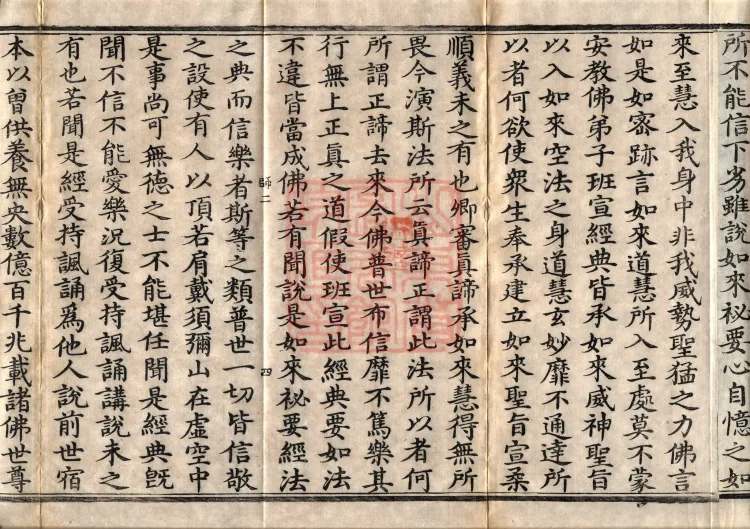 所不能信下劣雖說如來祕要心自憶之如
來至慧入我身中非我威勢聖猛之力佛言
如是如是密跡言如來道慧所入至處莫不蒙
安教佛弟子班宣經典皆承如來威神聖旨
以入如來空法之身道慧玄妙靡不通達所
以者何欲使衆生奉承建立如來聖旨宣柔
順義未之有也卿審眞諦承如來慧得無所
畏今演斯法所云眞諦正謂此法所以者何
所謂正諦去來今佛普世布信靡不篤樂其
行無上正眞之道假使班宣此經典要如法
不違皆當成佛若有聞說是如來祕要經法
師二
四
之典而信樂者斯等之類普世一切皆信敬
之設使有人以頂若肩戴須彌山在虛空中
是事尚可無德之士不能堪任聞是經典旣
聞不信不能愛樂況復受持諷誦講說未之
有也若聞是經受持諷誦爲他人說前世宿
本以曾供養無央數億百千兆載諸佛世尊